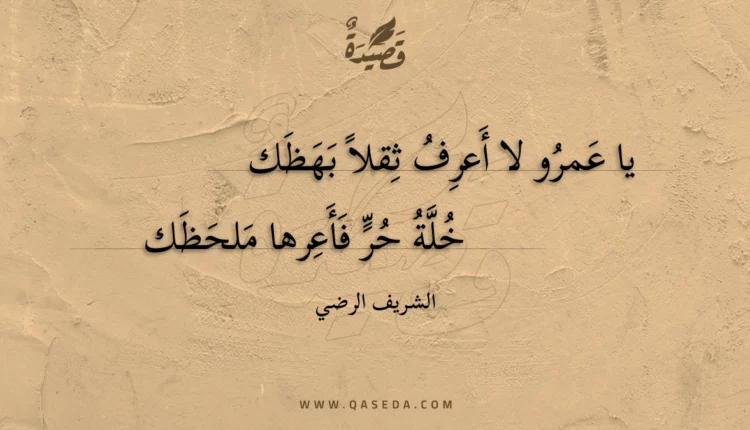 قَصِيدَةٌ
يا عَمرُو لا أَعرِفُ ثِقلاً بَهَظَك
خُلَّةُ حُرٍّ فَأَعِرها مَلحَظَك
الشريف الرضي
WWW.QASEDA.COM